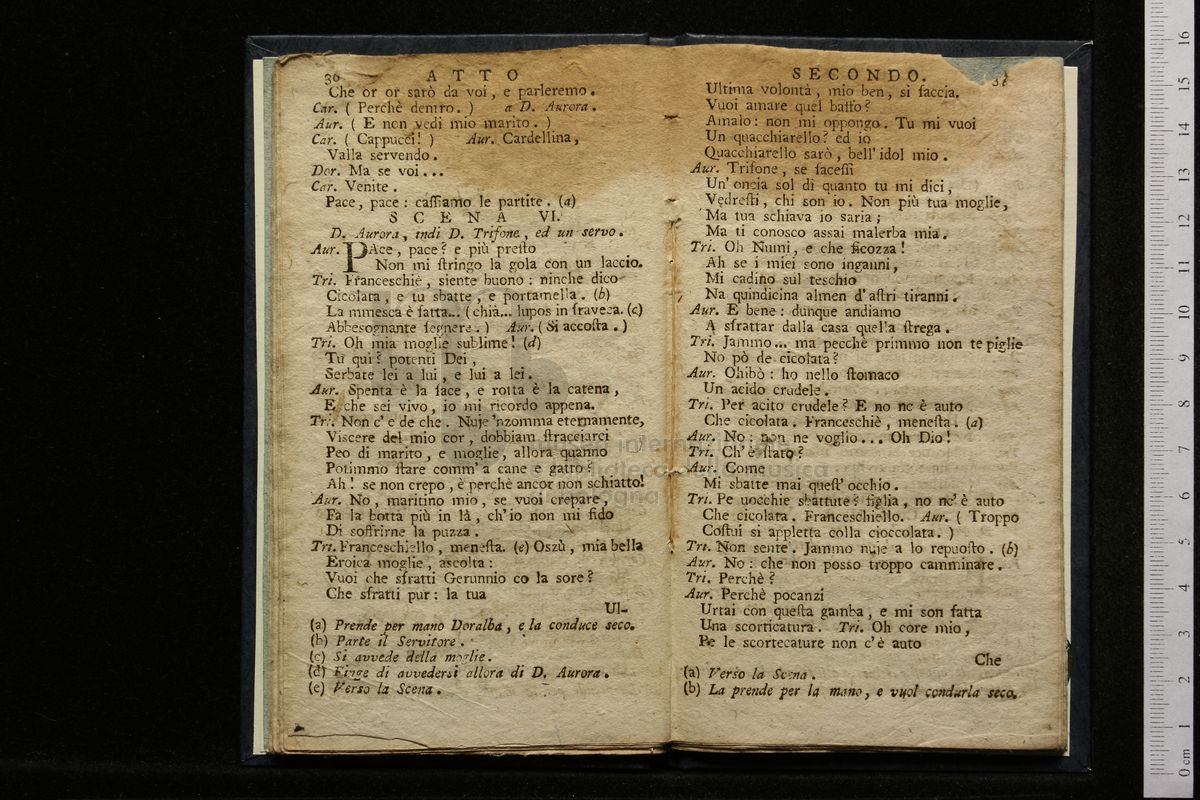 30 ATTO
Che or or sarò da voi, e parleremo.
Car. (Perchè dentro.) a D. Aurora.
Aur. (E non vedi mio marito.)
Car. (Cappucci!) Aur. Cardellina,
Valla servendo.
Dor. Ma se voi...
Car. Venite.
Pace, pace: cassiamo le partite. (a)
SCENA VI.
D. Aurora, indi D. Trifone, ed un servo.
Aur. PAce, pace? e più presto
Non mi stringo la gola con un laccio.
Tri. Franceschiè, siente buono: ninche dico
Cicolata, e tu sbatte, e portamella. (b)
La mmesca è fatta... (chia... lupos in fravola. (c)
Abbesognante fegnere.) Aur. (Si accosta.)
Tri. Oh mia moglie sublime! (d)
Tu qui? potenti Dei,
Serbate lei a lui, e lui a lei.
Aur. Spenta è la face, e rotta è la catena,
E che sei vivo, io mi ricordo appena.
Tri. Non c'e de che. Nuje 'nzomma eternamente,
Viscere del mio cor, dobbiam stracciarci
Peo di marito, e moglie, allora quanno
Potimmo stare comm' a cane e gatto?
Ah! se non crepo, è perchè ancor non schiatto!
Aur. No, maritino mio, se vuoi crepare,
Fa la botta più in là, ch'io non mi fido
Di soffrirne la puzza.
Tri. Franceschiello, menesta. (e) Oszù, mia bella
Eroica moglie, ascolta:
Vuoi che sfratti Gerunnio co la sore?
Che sfratti pur: la tua
Ul-
(a) Prende per mano Doralba, e la conduce seco.
(b) Parte il Servitore.
(c) Si avvede della moglie.
(d) Finge di avvedersi allora di D. Aurora.
(e) Verso la Scena.
SECONDO. 31
Ultima volontà, mio ben, si faccia.
Vuoi amare quel baffo?
Amalo: non mi oppongo. Tu mi vuoi
Un quacchiarello? ed io
Quacchiarello sarò, bell' idol mio.
Aur. Trifone, se facessi
Un' oncia sol di quanto tu mi dici,
Vedresti, chi son io. Non più tua moglie,
Ma tua schiava io saria;
Ma ti conosco assai malerba mia.
Tri. Oh Numi, e che ficozza!
Ah se i miei sono inganni,
Mi cadino sul teschio
Na quindicina almen d'astri tiranni.
Aur. E bene: dunque andiamo
A sfrattar dalla casa quella strega.
Tri. Jammo... ma pecchè primmo non te piglie
No pò de cicolata?
Aur. Ohibò: ho nello stomaco
Un acido crudele.
Tri. Per acito crudele? E no nc è auto
Che cicolata. Franceschiè, menesta. (a)
Aur. No: non ne voglio... Oh Dio!
Tri. Ch' è stato?
Aur. Come
Mi sbatte mai quest' occhio.
Tri. Pe uocchie sbattute? figlia, no nc' è auto
Che cicolata. Franceschiello. Aur. (Troppo
Costui si appletta colla cioccolata.)
Tri. Non sente. Jammo nuje a lo repuosto. (b)
Aur. No: che non posso troppo camminare.
Tri. Perchè?
Aur. Perchè pocanzi
Urtai con questa gamba, e mi son fatta
Una scorticatura. Tri. Oh core mio,
Pe le scortecature non c'è auto
Che
(a) Verso la Scena.
(b) La prende per la mano, e vuol condurla seco.